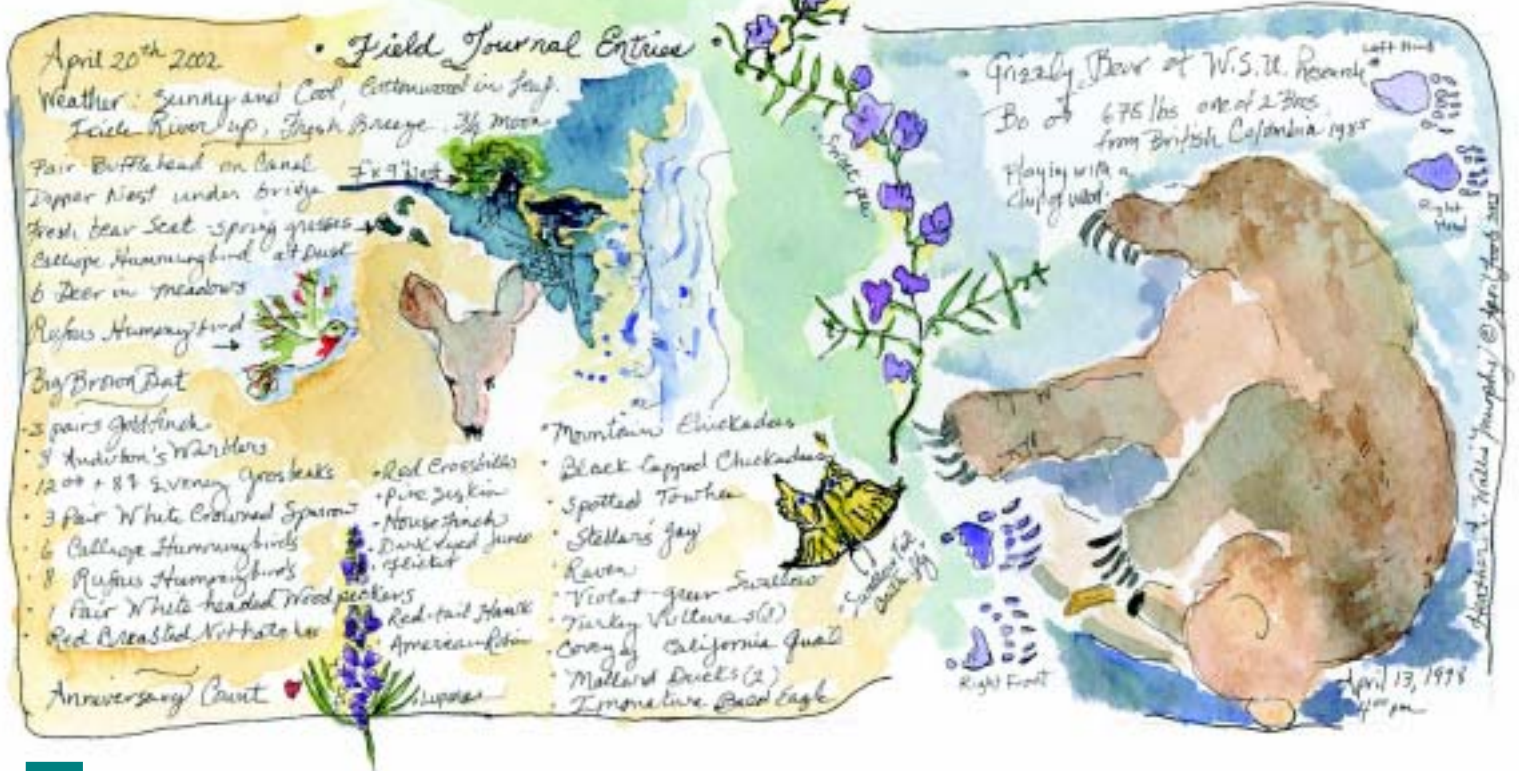 • Field Journal Entries •
April 20th 2002
Weather: Sunny and Cool, Cottonwood in leaf.
Icicle River up, Fresh Breeze. 3/4 moon
Pair Bufflehead on Canal
Dipper Nest under bridge
Fresh bear Scat - spring grasses
Calliope Hummingbird at Dusk
6 Deer in meadows
Rufous Hummingbird
Big Brown Bat
7 x 9" Nest
• 3 pairs Goldfinch
• 8 Audubon's Warblers
• 12 ♂♂ + 8 ♀ Evening Grosbeaks
• 3 Pair White Crowned Sparrow
• 6 Calliope Hummingbirds
• 8 Rufous Hummingbirds
• 1 Pair White headed Woodpeckers
• Red Breasted Nuthatches
Anniversary Count
• Red Crossbills
• Pine Siskin
• House finch
• Dark eyed Junco
• Flicker
• Red-tail Hawk
• American Robin
• Lupine
• Mountain Chickadees
• Black Capped Chickadees
• Spotted Towhee
• Stellar's Jay
• Raven
• Violet-green Swallow
• Turkey Vultures
• Covey of California Quail
• Mallard Ducks (2)
• Immature Bald Eagle
• Sweet pea
• Swallow Tail
Butterfly
• Grizzly Bear at W.S.U. Research
Bo ♂ 675 lbs one of 2 Bros
from British Columbia 1985
Playing with a
chip of wood.
Left Hind
Right
Hind
Right Front
April 13, 1998
4:00 pm
Heather A. Wallis Murphy ©